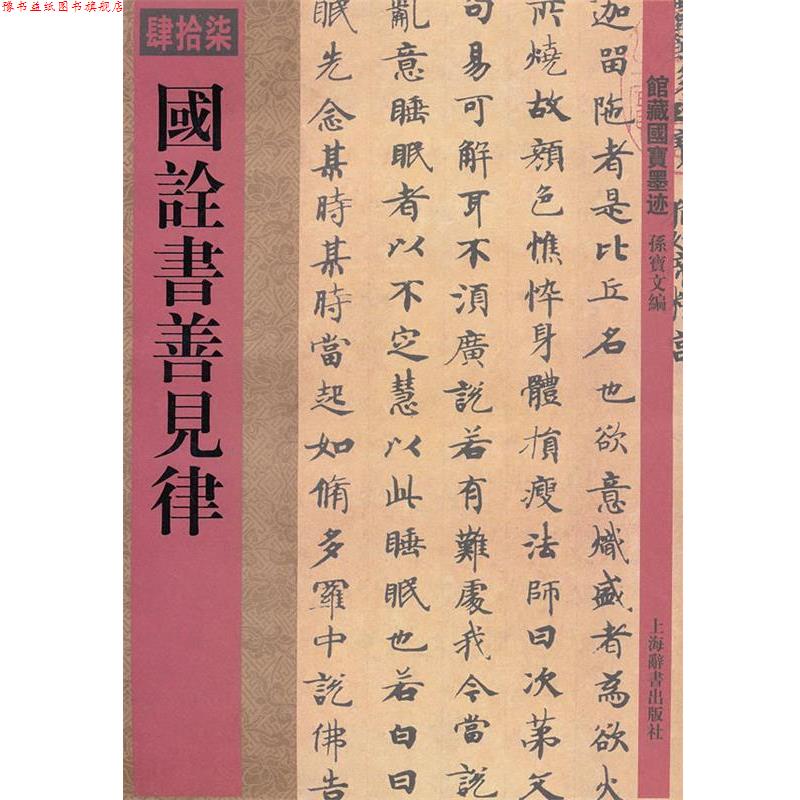 豫书益纸图书旗舰店
肆拾柒
國詮書善見律
館藏國寶墨迹
孫寶文編
上海辭書出版社
迦留陁者是比丘名也欲意熾盛者為欲火
所燒故顏色憔悴身體損瘦法師曰次第文
句易可解耳不須廣說若有難處我今當說
亂意睡眠者以不定慧以此睡眠也若白日
眠先念某時某時當起如脩多羅中說佛告